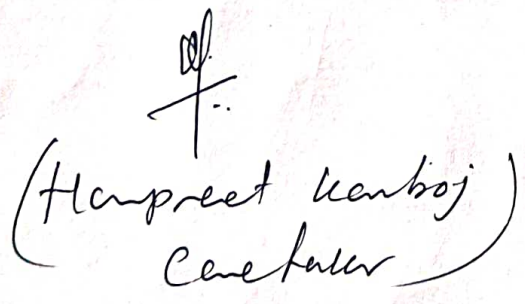 (Harpreet Kamboj
Caretaker)